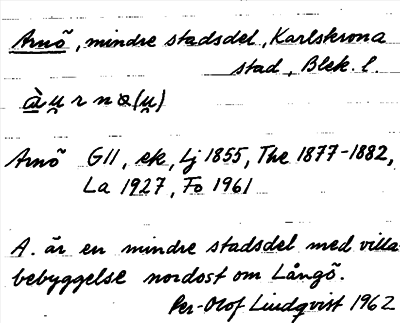 Arnö, mindre stadsdel, Karlskrona
stad, Blek. l.
Arnö GII, ek, Lj 1855, The 1877-1882,
La 1927, Fo 1961
A. är en mindre stadsdel med villa
bebyggelse nordost om Långö.
Per-Olof Lindqvist 1962